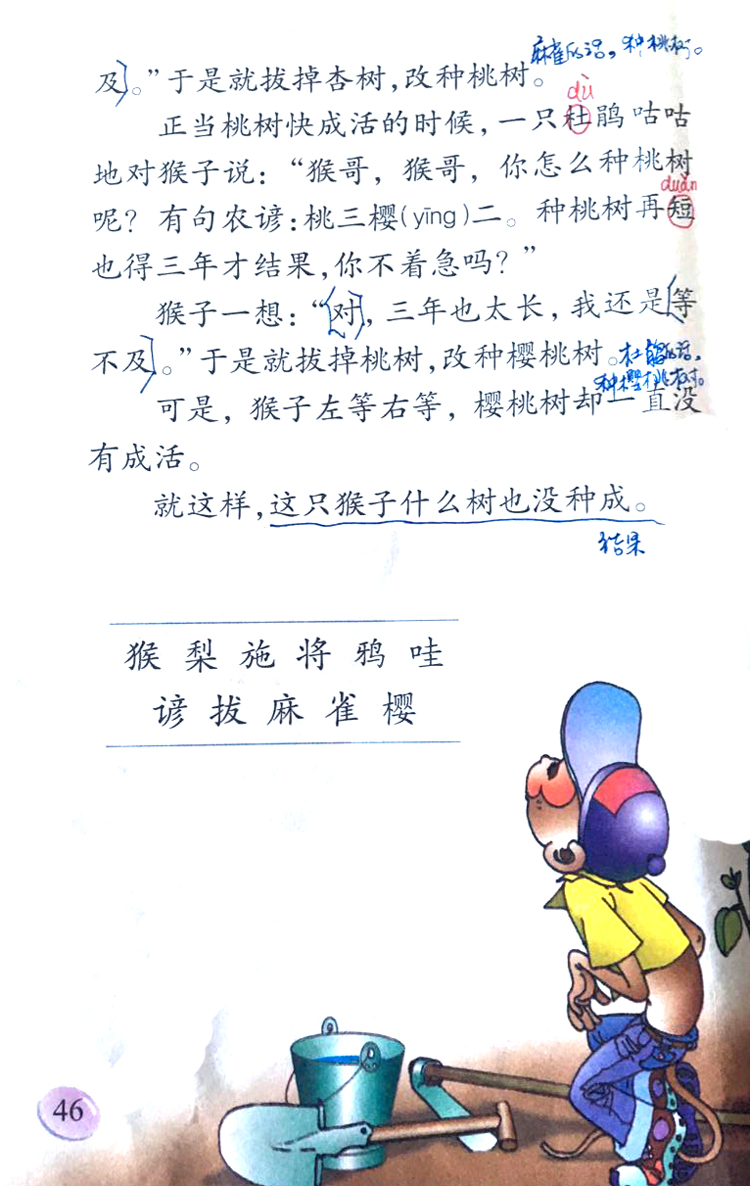 麻雀的话，种桃树。
及。”于是就拔掉杏树，改种桃树。
dù
正当桃树快成活的时候，一只杜鹃咕咕
地对猴子说：“猴哥，猴哥，你怎么种桃树
duǎn
呢？有句农谚：桃三樱(yīng)二。种桃树再短
也得三年才结果，你不着急吗？”
猴子一想：“对，三年也太长，我还是等
不及。”于是就拔掉桃树，改种樱桃树。
杜鹃的话，
种樱桃树。
可是，猴子左等右等，樱桃树却一直没
有成活。
就这样，这只猴子什么树也没种成。
结果
猴 梨 施 将 鸦 哇
谚 拔 麻 雀 樱
46